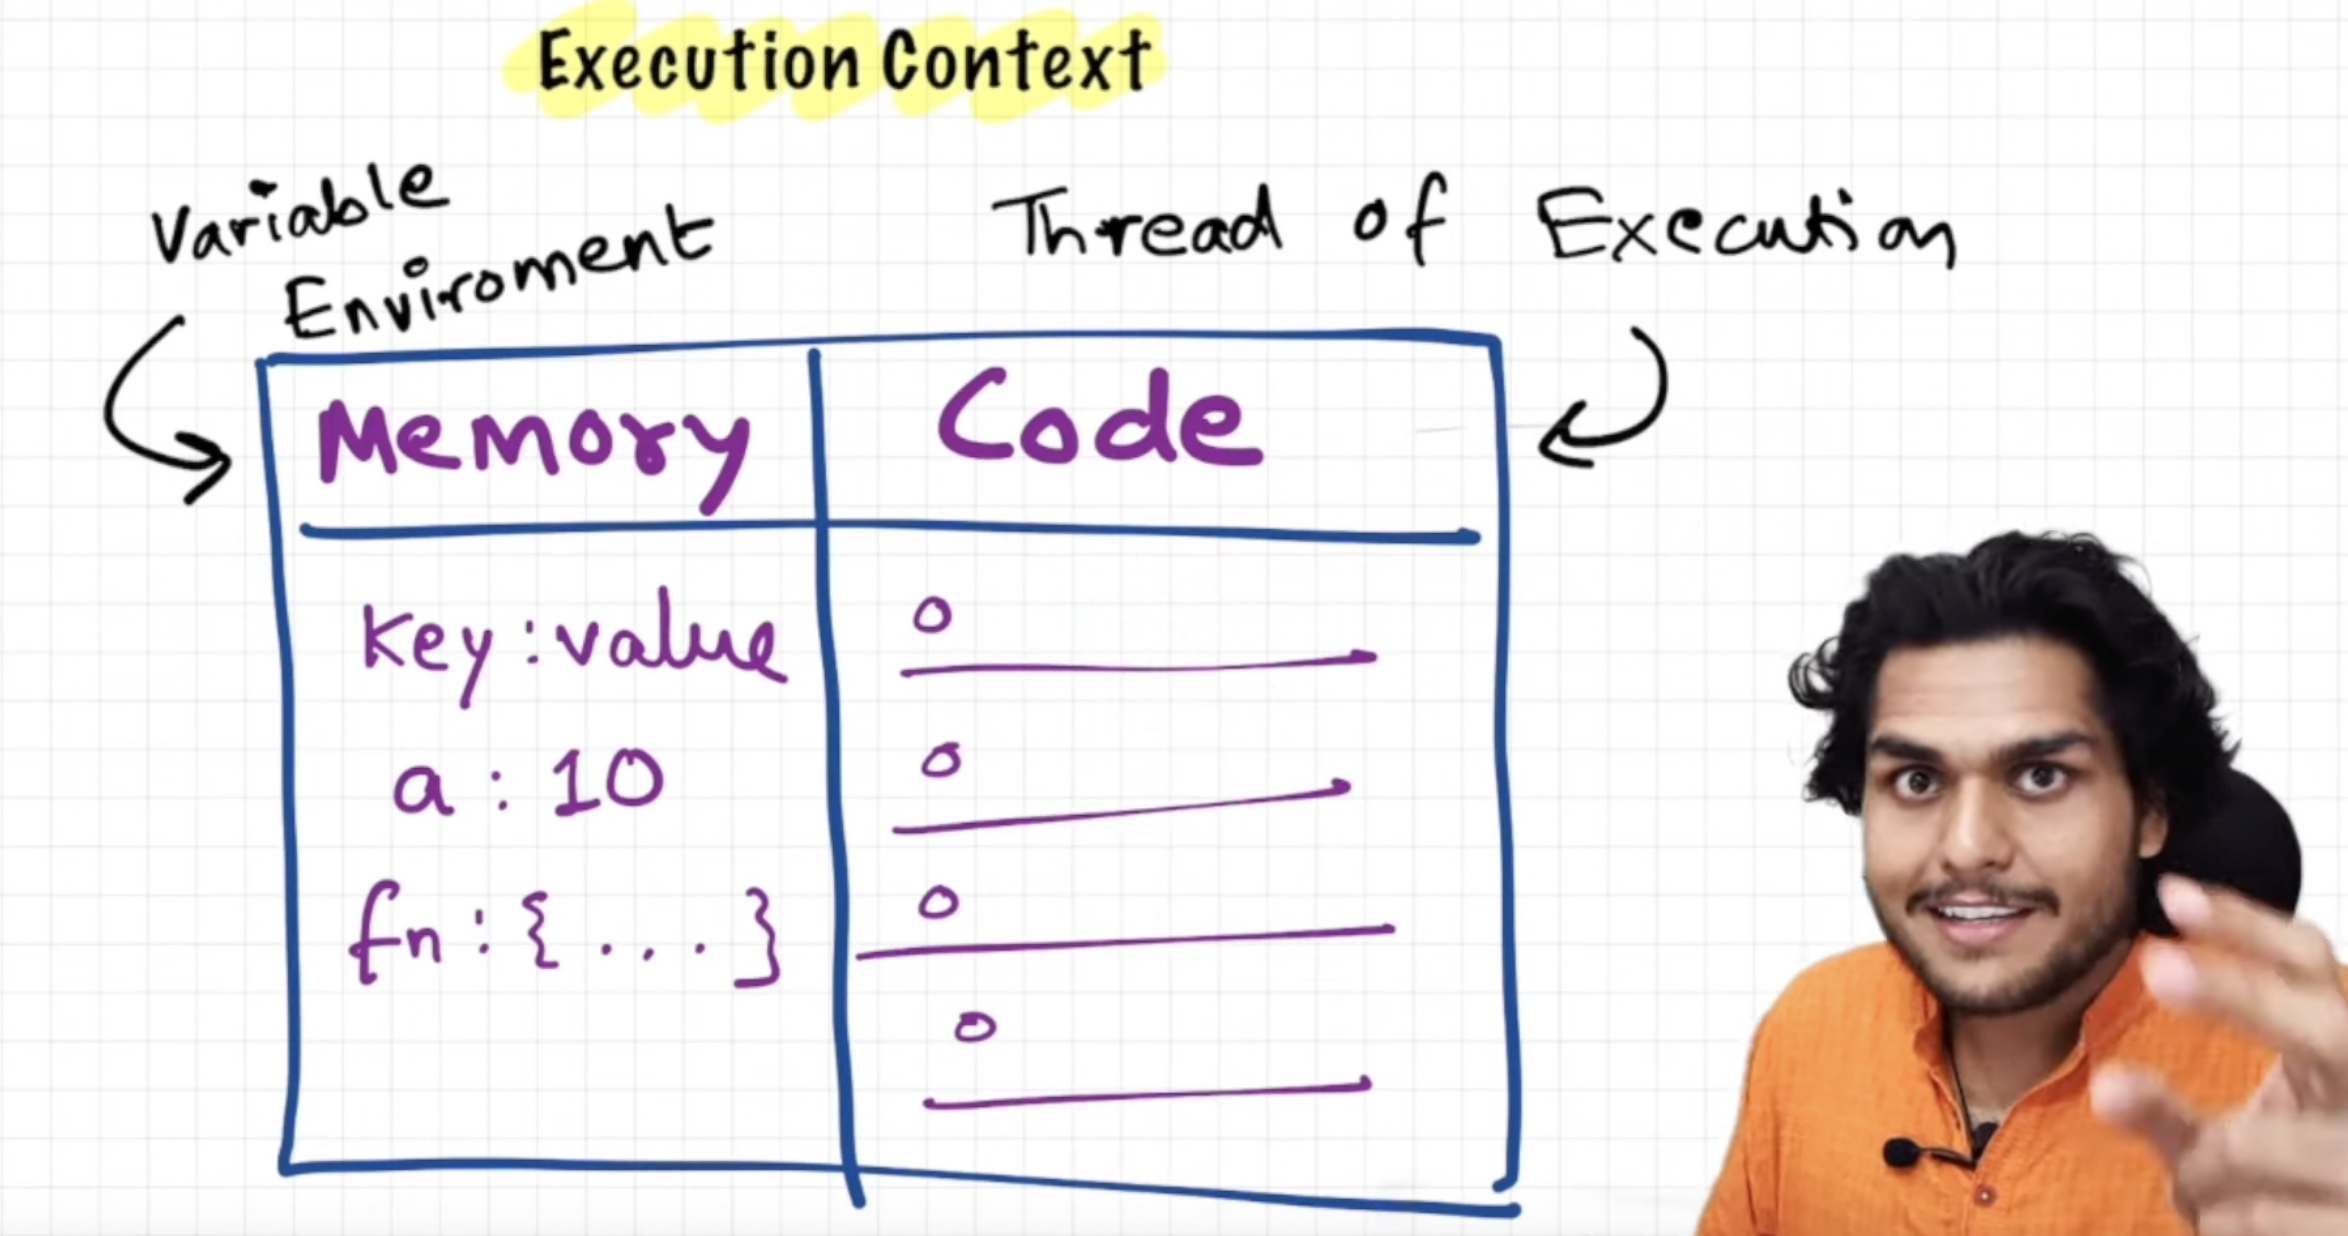 Execution Context
Variable
Enviroment
Thread of Execution
Memory
Code
Key : value
a : 10
fn : { ... }
o
o
o
o